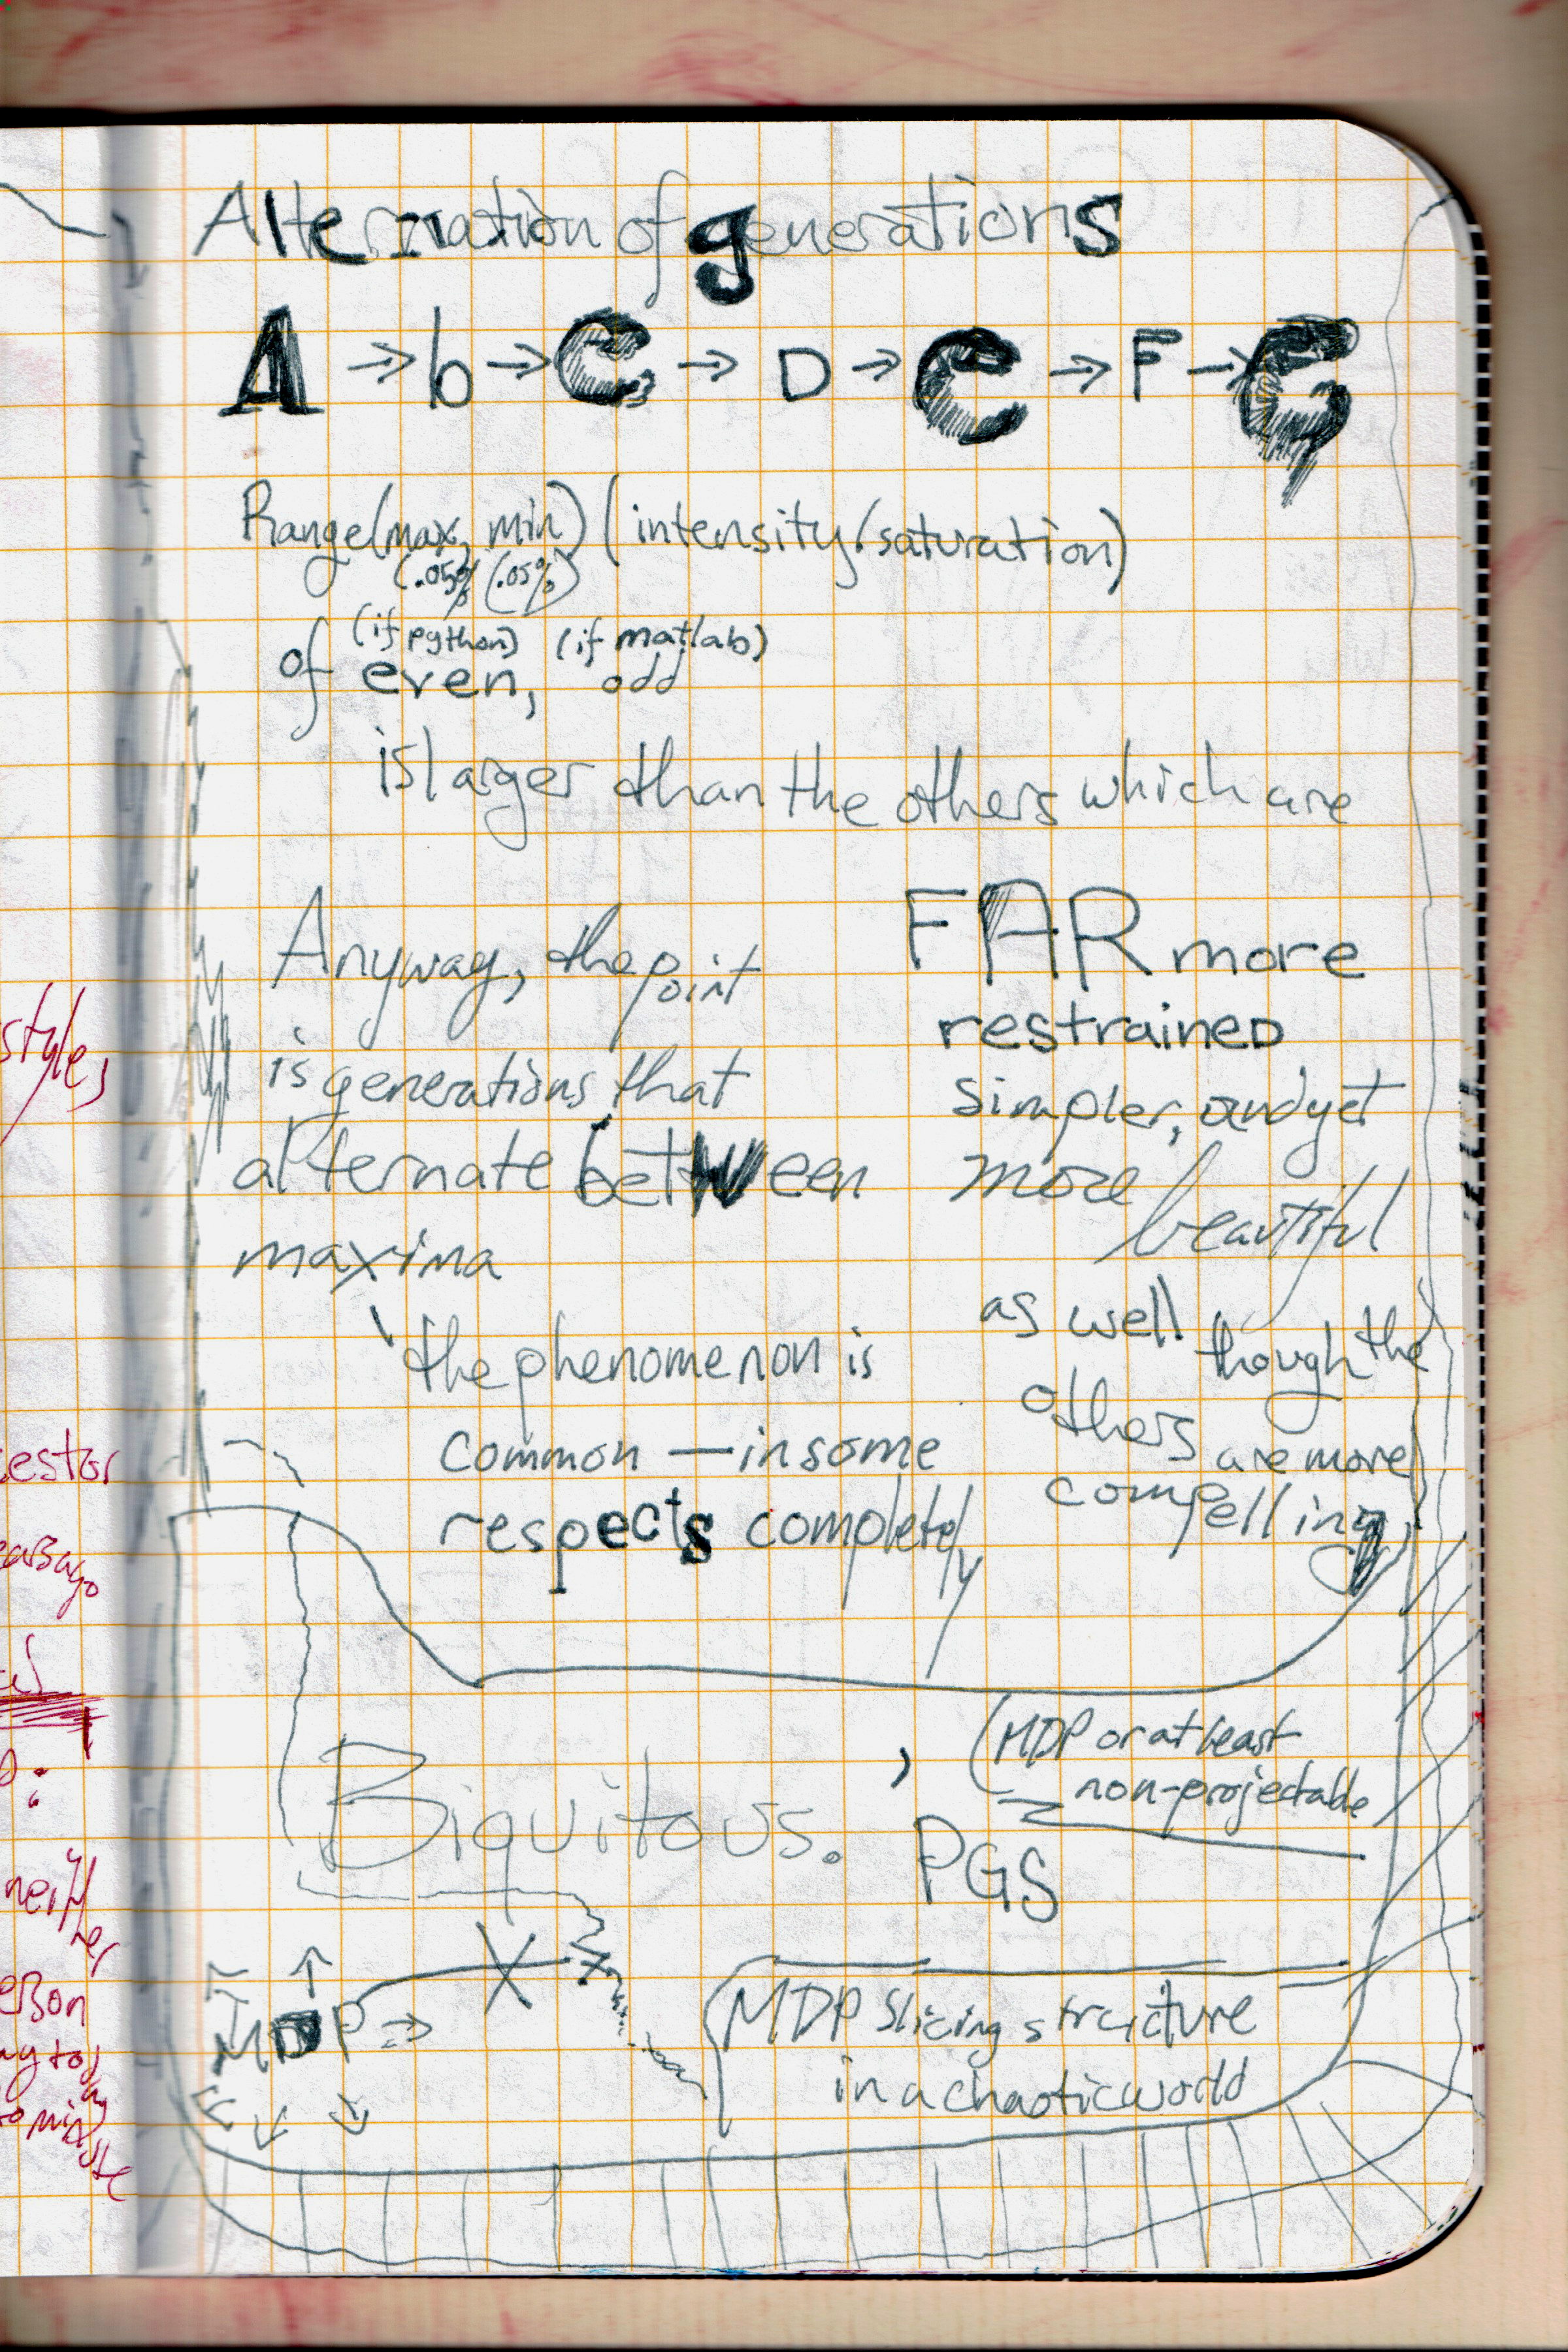 Alternation of generations
A → b → C → D → e → F → G
Range(max, min) (intensity/saturation)
(.05%) (.05%)
(if python) (if matlab)
of even, odd
is larger than the others which are
FAR more
restrained
simpler, and yet
more beautiful
as well though the
others are more
compelling
Anyway, the point
is generations that
alternate between
maxima
the phenomenon is
common — in some
respects completely
Biquitous.
, (MDP or at least
non-projectable
PGS
MDP →
MDP slicing structure
in a chaotic world
styles
estor
neither
erson